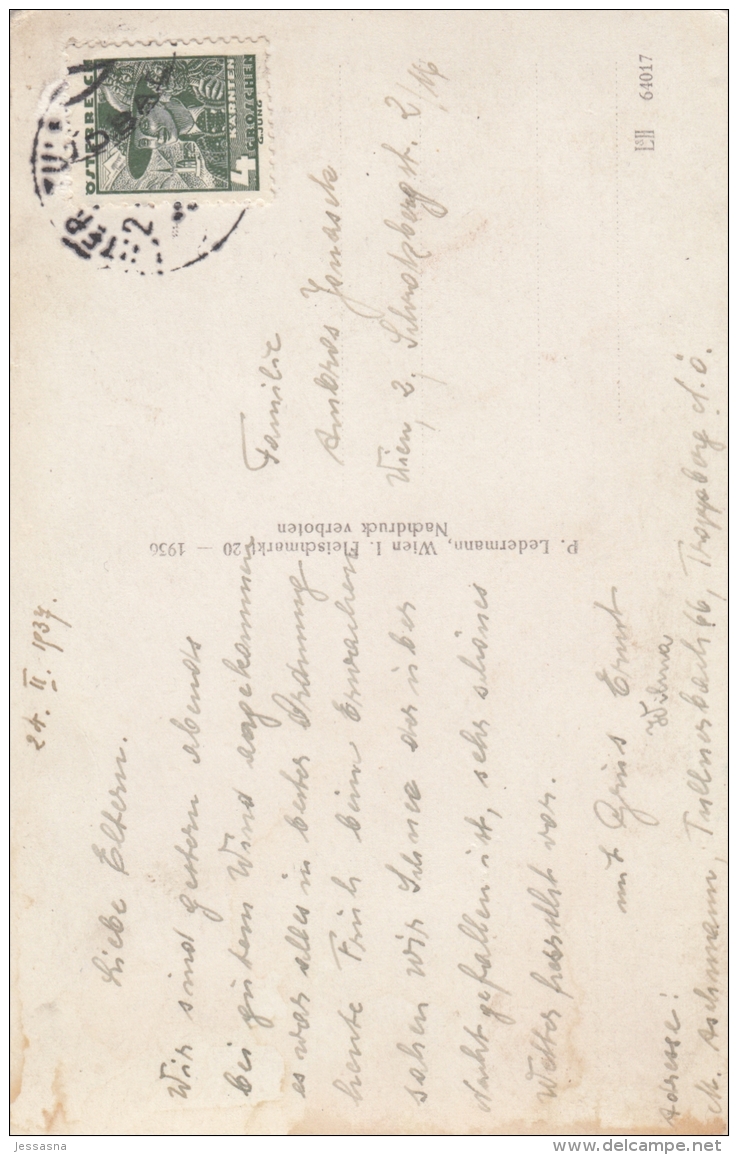 24. II. 1937.
Liebe Eltern.
Wir sind gestern abends
bei gutem Wind angekommen
es war alles in bester Ordnung
heute Früh beim Erwachen
sahen wir Schnee der über
Nacht gefallen ist, sehr schönes
Wetter herrscht vor.
mit Gruss Ernst
Wilma
Adresse:
Aschmann, Tullnerbach 66, Troppberg N.Ö.
P. Ledermann, Wien I. Fleischmarkt 20 — 1936
Nachdruck verboten
ÖSTERREICH
4
GROSCHEN
KÄRNTEN
G.JUNG
UNTER
Familie
Ambros
Wien, 2, 2/16
64017
jessasna
www.delcampe.net